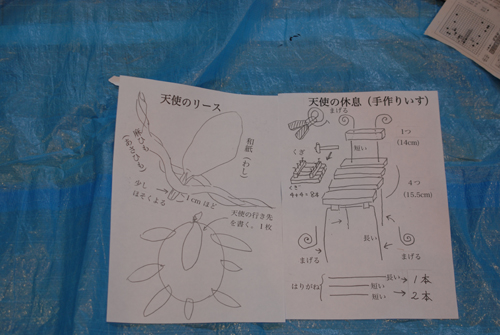 天使のリース
麻ひも
(あさひも)
和紙(わし)
1cmほど
少し
ほそくよる
天使の行き先
を書く、1枚
天使の休息(手作りいす)
まげる
1つ
(14cm)
短い
くぎ
くぎ
4+4=8本
4つ
(15.5cm)
長い
まげる
まげる
はりがね
長い→1本
短い
短い
→2本